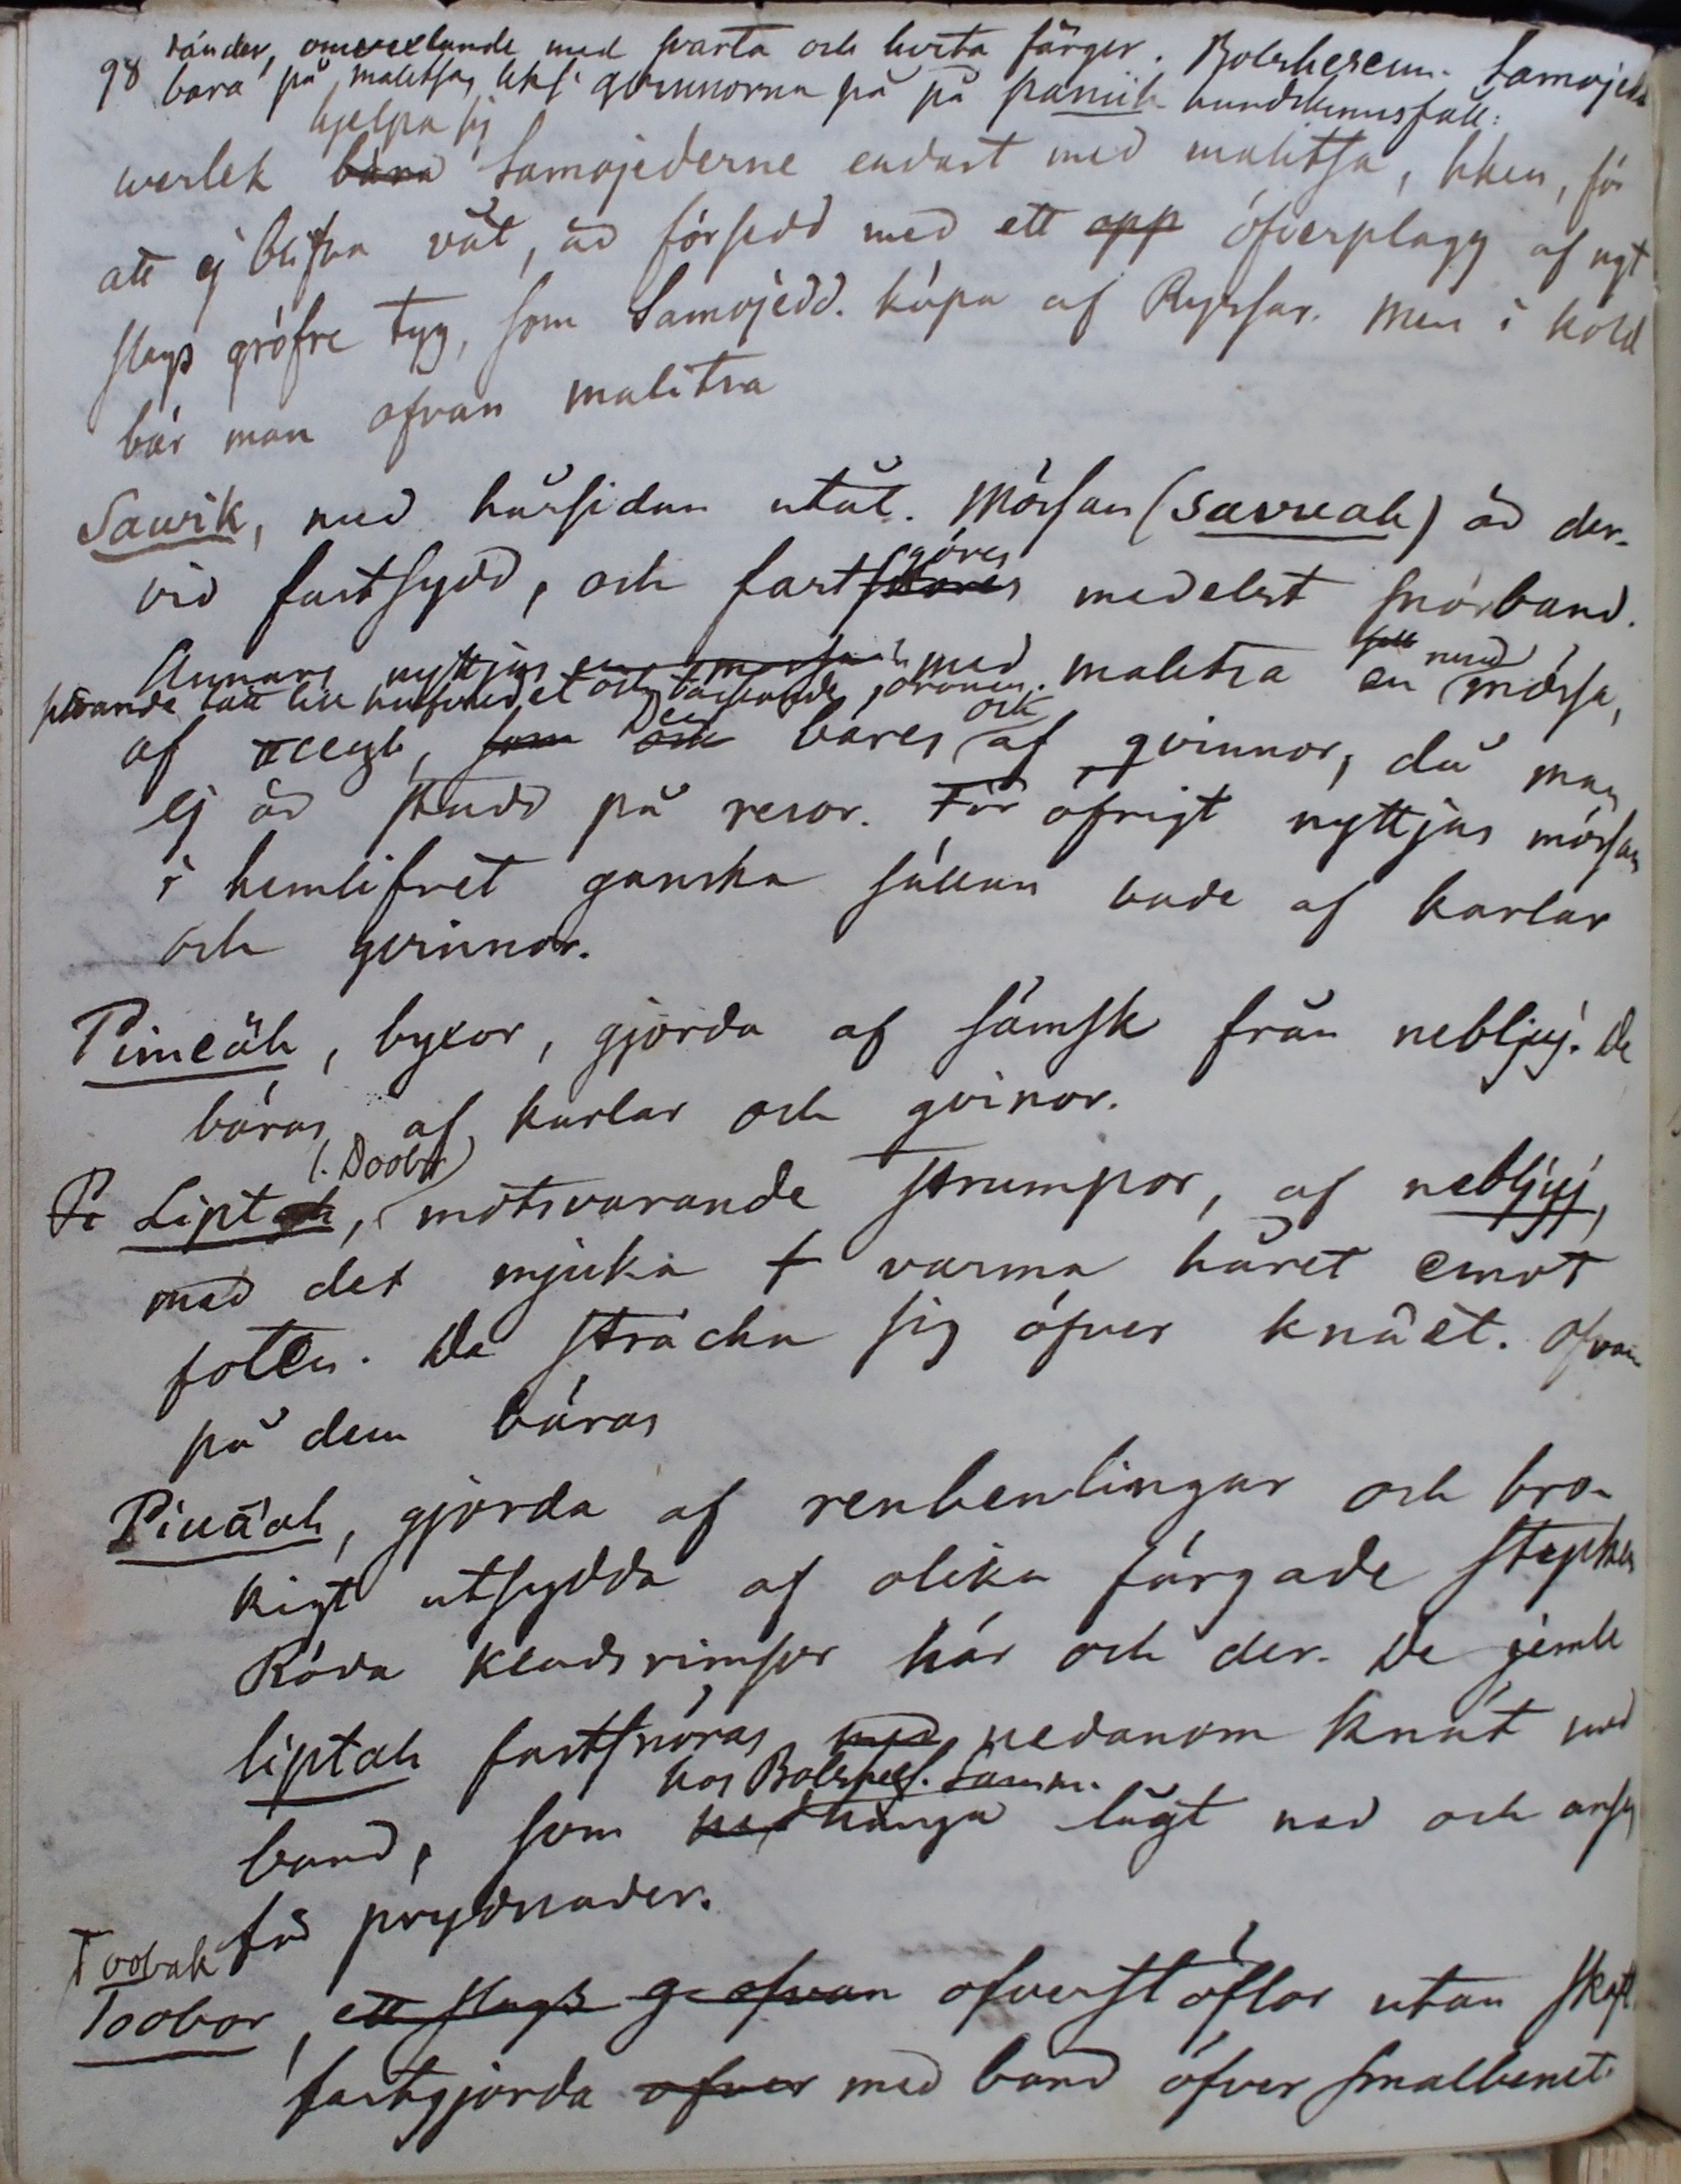 ränder, omvexlande med svarta och hvita färger. Bolshesem. Samojed.
98 bära på malitsa, qvinnorna på på panith hundskinnsfäll:
hjelpa sig
werlek bära Samojederne endast med malitsa, hken, för
att ej blifva våt, är försedd med ett opp öfverplagg af ngt
slags gröfre tyg, som Samojedd. köpa af Ryssar. Men i köld
bär man ofvan malitsa
Sawik, med hårsidan utåt. Mössan (savuah) är der-
göres
vid fastsydd, och fasts medelst snörband.
Annars nyttjas en mössa med malitsa en rund mössa,
sittande tätt till hufvudet och öronen.
Den och
af som och bäres af qvinnor, då man
ej är stadd på resor. För öfrigt nyttjas mössan
i hemlifvet ganska sällan både af karlar
och qvinnor.
Pimeäh, byxor, gjorda af sämsk från nebljuj. De
bäras af karlar och qvinor.
(. Doobt)
Pi Liptah, motsvarande strumpor, af nebljuj,
med det mjuka + varma håret emot
foten. De sträcka sig öfver knäet. Ofvan
på dem bäras
Piwäah, gjorda af renbenlingar och bro-
kigt utsydda af olika färgade stycken
Röda klädsrimsor här och der. De jemte
liptah fastsnöras med nedanom knät med
hos Bolshes. Samm.
band, som ned hänga lågt ned och anses
för prydnader.
Toobak
Toobar, ett slags g ofvan öfverstöflor utan skaft
fastgjorda öfver med band öfver smalbenet.